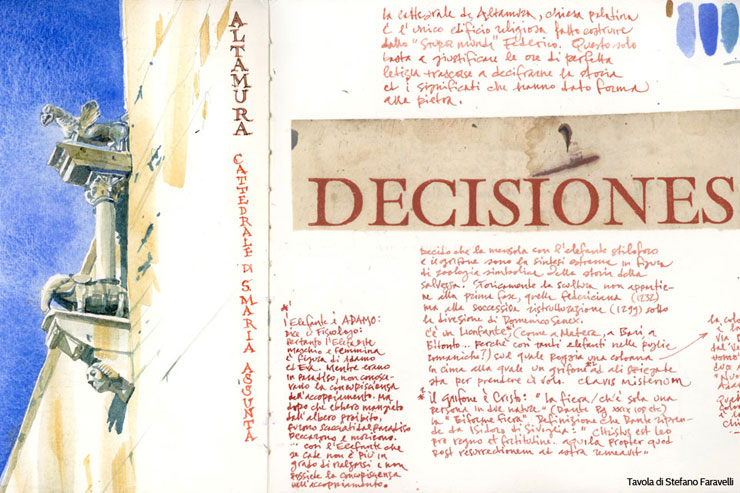 ALTAMURA
CATTEDRALE DI S. MARIA ASSUNTA
la cattedrale di Altamura, chiesa palatina
è l'unico edificio religioso fatto costruire
dallo "Stupor mundi" Federico. Questo solo
basta a giustificare le ore di perfetta
letizia trascorse a decifrarne la storia
ed i significati che hanno dato forma
alla pietra.
DECISIONES
Decido che la mensola con l'elefante stiloforo
e il grifone sono la sintesi estrema in figura
di zoologia simbolica della storia della
salvezza. Storicamente la scultura non appartie-
ne alla prima fase, quella federiciana (1232)
ma alla successiva ristrutturazione (1299) sotto
la direzione di Domenico
C'è un lionfante (come a Matera, a Bari a
Bitonto... perché così tanti elefanti nelle Puglie
romaniche?) sul quale poggia una colonna
in cima alla quale un grifone ad ali spiegate
sta per prendere il volo. clavis misterium
* il grifone è Cristo: "la fiera / ch'è sola una
persona in due nature" (Dante Pg XXXI etc)
la "Biforme fiera". Definizione che Dante ripren-
de da Isidoro di Siviglia: "Christus est leo
pro regno et fortitudine. aquila propter quod
post resurrectionem ad astra remeavit"
l'Elefante è ADAMO:
dice il Fisiologo:
Pertanto l'Elefante
maschio e femmina
è figura di Adamo
ed Eva. Mentre erano
in Paradiso, non conosce-
vano la concupiscenza
dell'accoppiamento. Ma
dopo che ebbero mangiato
dall'albero proibito,
furono scacciati dal Paradiso
peccarono e morirono.
... così l'Elefante che
se cade non è più in
grado di rialzarsi e non
possiede la concupiscenza
nell'accoppiamento.
la colo
Tavola di Stefano Faravelli